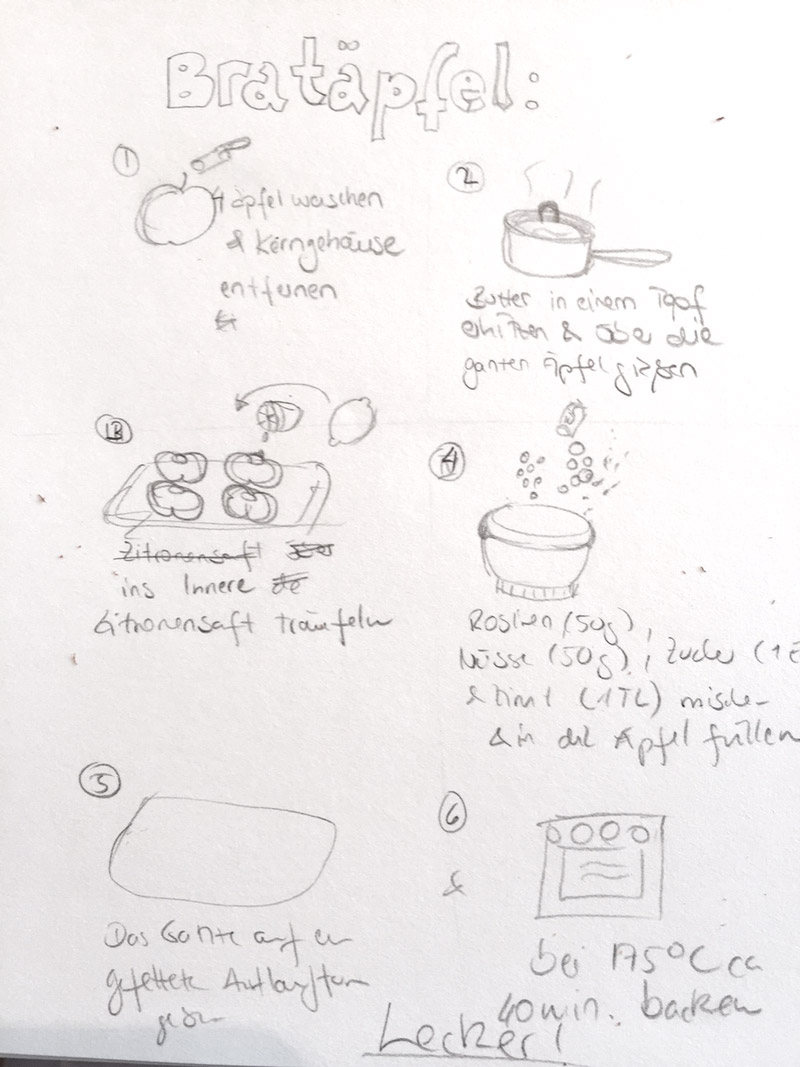 Bratäpfel:
1
4 Äpfel waschen
& Kerngehäuse
entfernen
2
Butter in einem Topf
erhitzen & über die
ganzen Äpfel gießen
3
Zitronensaft
ins Innere
Zitronensaft träufeln
4
Rosinen (50g),
Nüsse (50g), Zucker (1 E
& Zimt (1TL) mischen
& in die Äpfel füllen
5
Das Ganze auf
gefettete Auflaufform
6
&
bei 175°C ca
40 min. backen
Lecker!